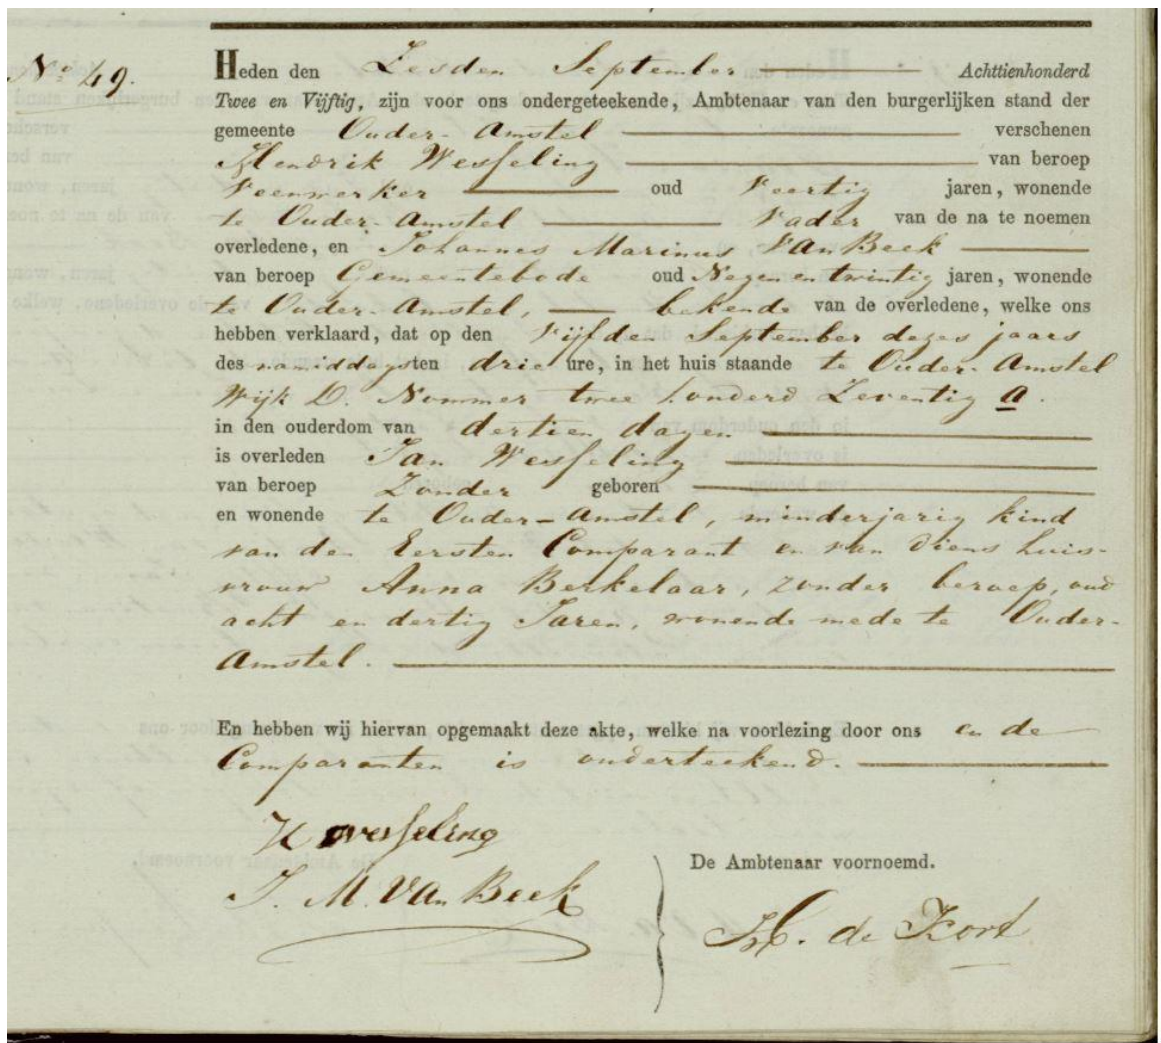 No 49.
Heden den Zesden September Achttienhonderd
Twee en Vijftig, zijn voor ons ondergeteekende, Ambtenaar van den burgerlijken stand der
gemeente Ouder-Amstel verschenen
Hendrik Wesseling van beroep
Veenwerker oud Veertig jaren, wonende
te Ouder-Amstel Vader van de na te noemen
overledene, en Johannes Marinus Van Beek
van beroep Gemeentebode oud Negenentwintig jaren, wonende
te Ouder-Amstel, bekende van de overledene, welke ons
hebben verklaard, dat op den Vijfden September dezes jaars
des namiddags ten drie ure, in het huis staande te Ouder-Amstel
Wijk D. Nommer twee honderd Zeventig a.
in den ouderdom van dertien dagen
is overleden Jan Wesseling
van beroep Zonder geboren
en wonende te Ouder-Amstel, minderjarig kind
van den Eersten Comparant en van diens huis-
vrouw Anna Berkelaar, zonder beroep, oud
acht en dertig Jaren, wonende mede te Ouder-
Amstel.
En hebben wij hiervan opgemaakt deze akte, welke na voorlezing door ons en de
Comparanten is onderteekend.
H Wesseling
J. M. Van Beek
De Ambtenaar voornoemd.
de Kort